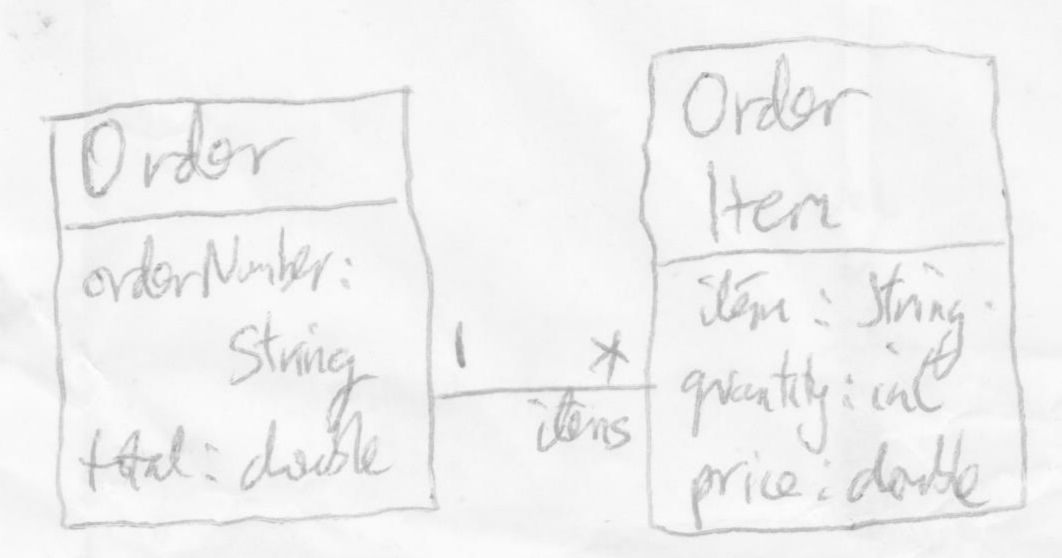 Order
orderNumber:
String
total: double
1
*
items
Order
Item
item: String
quantity: int
price: double